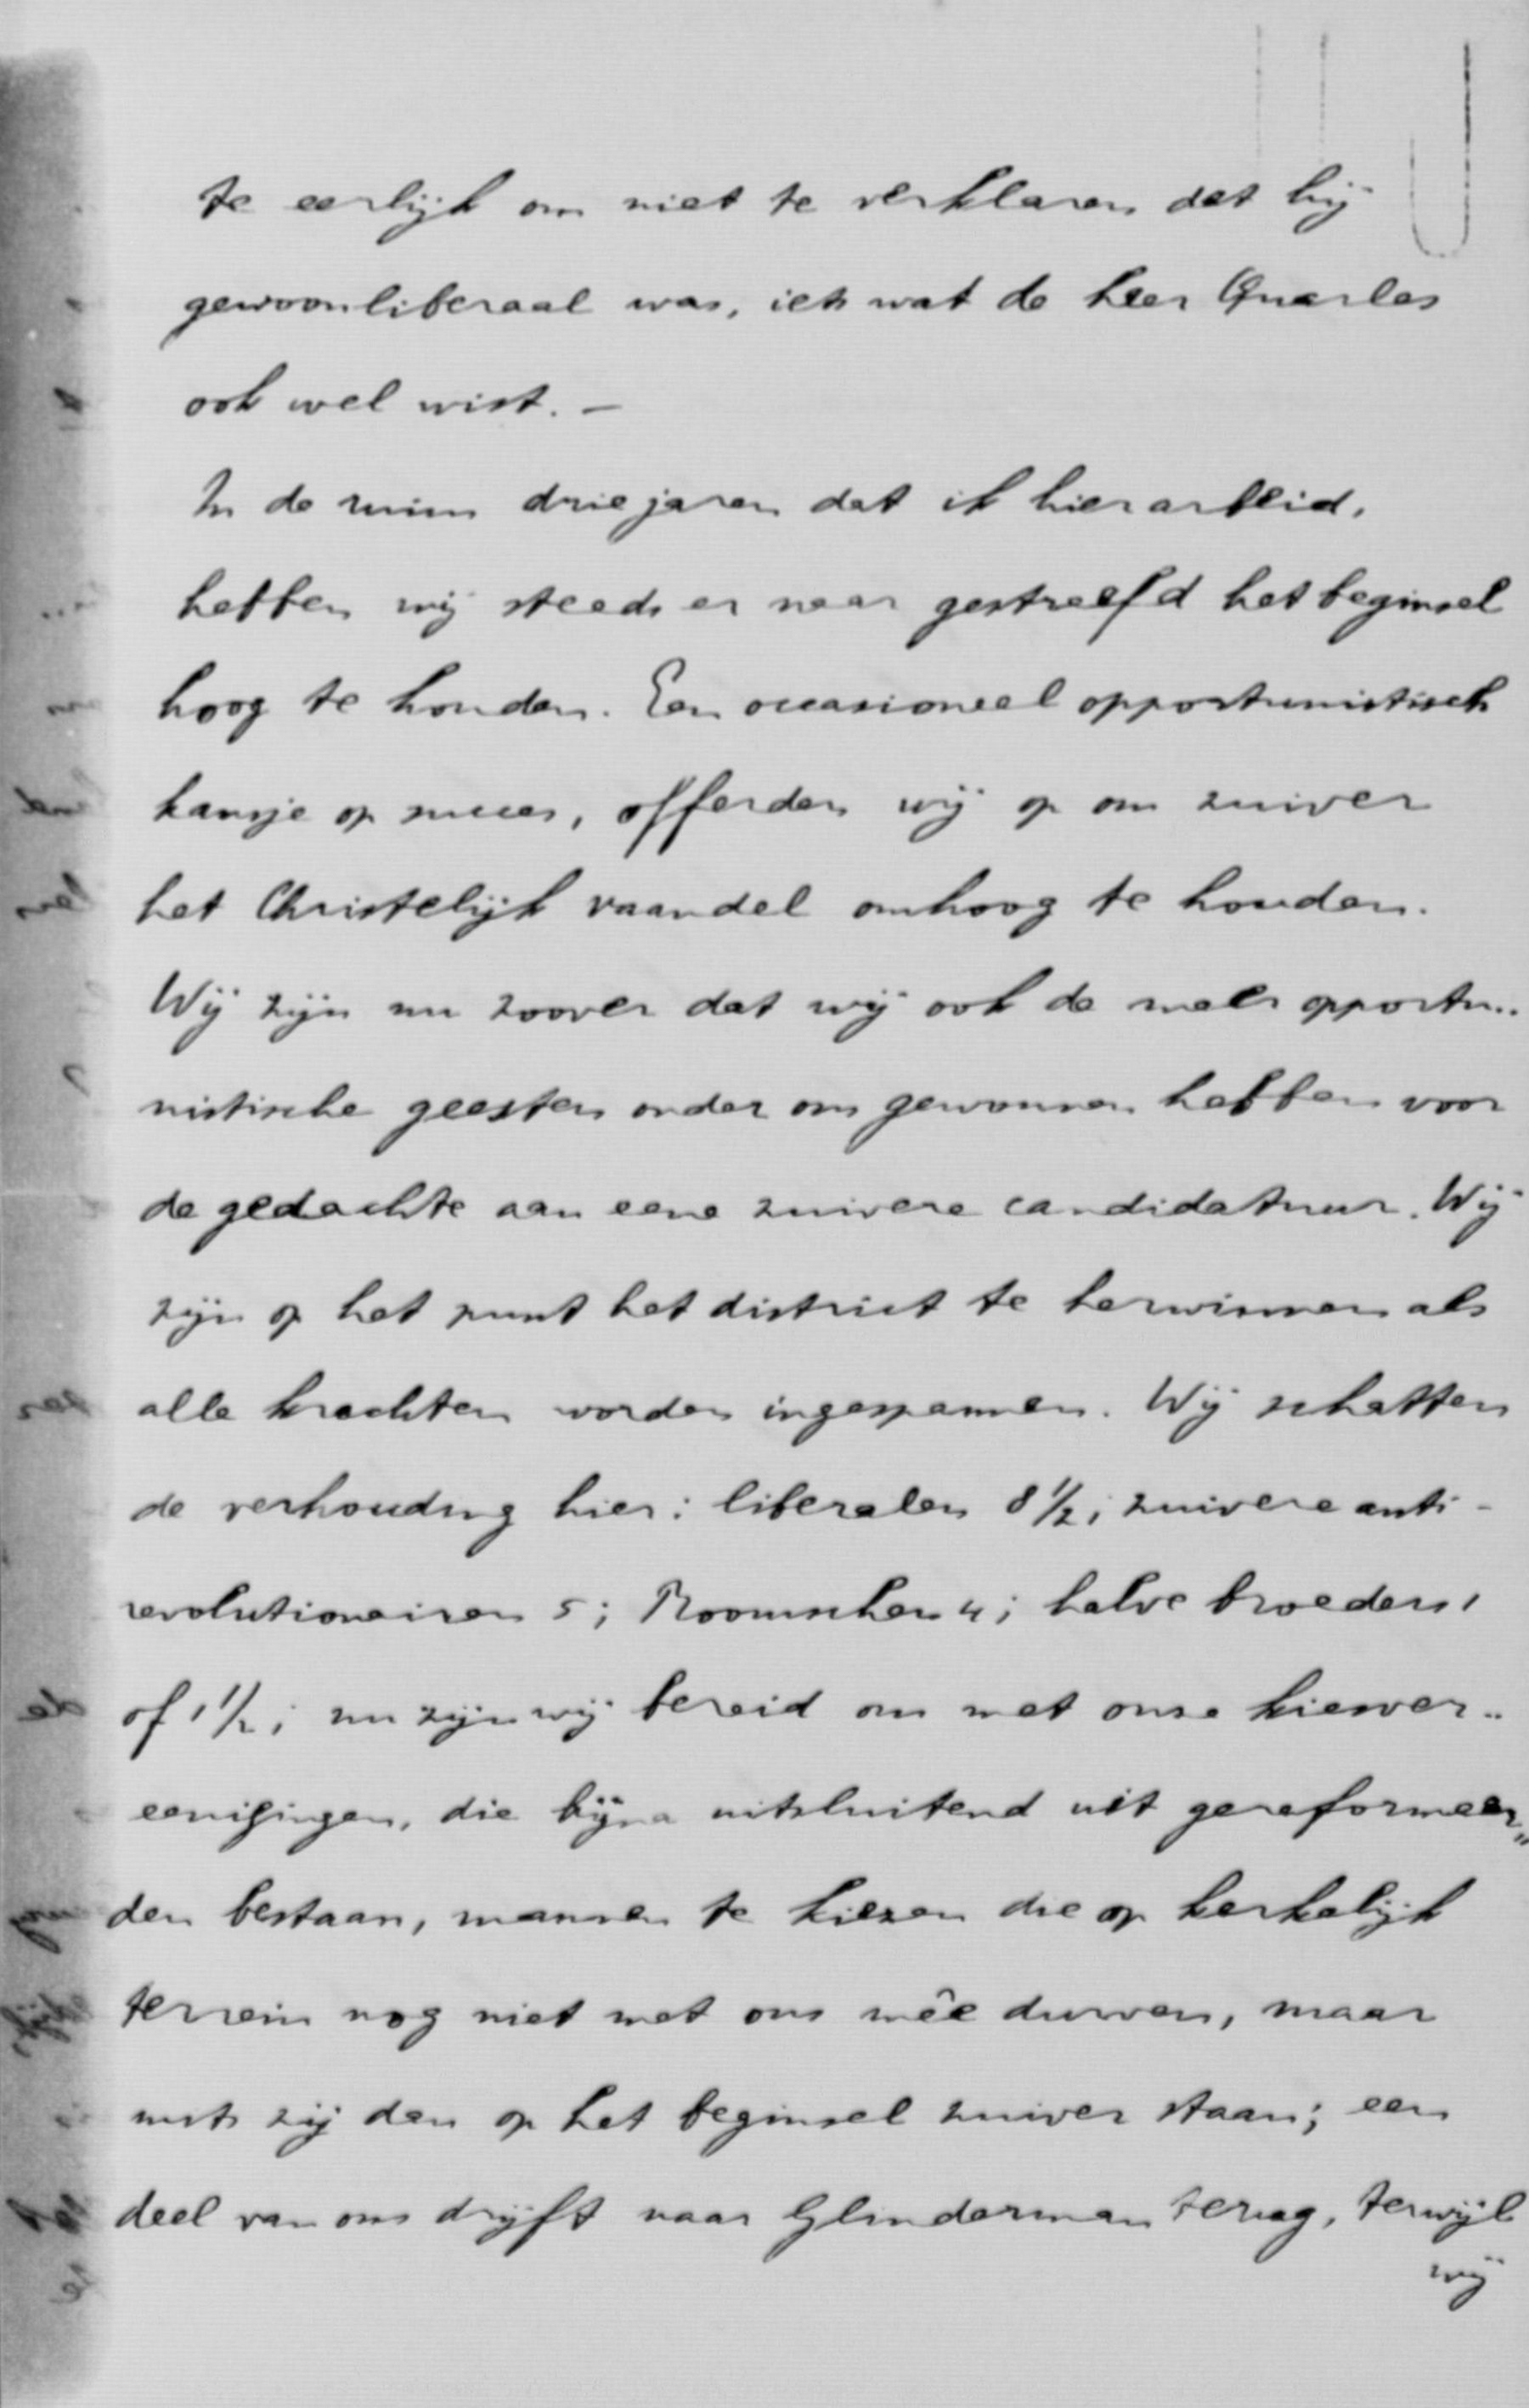 te eerlijk om niet te verklaren dat hij
gewoon liberaal was, iets wat de heer Quarles
ook wel wist. –
In de ruim drie jaren dat ik hier arbeid,
hebben wij steeds er naar gestreefd het beginsel
hoog te houden. Een occasioneel opportunistisch
kansje op succes, offerden wij op om zuiver
het Christelijk vaandel omhoog te houden.
Wij zijn nu zoover dat wij ook de meer opportu..
nistische geesten onder ons gewonnen hebben voor
de gedachte aan eene zuivere candidatuur. Wij
zijn op het punt het district te herwinnen als
alle krachten worden ingespannen. Wij schatten
de verhouding hier: liberalen 8 1/2; zuivere anti-
revolutionairen 5; Roomschen 4; halve broeders 1
of 1 1/2; nu zijn wij bereid om met onze kiesver..
eenigingen, die bijna uitsluitend uit gereformeer„
den bestaan, mannen te kiezen die op kerkelijk
terrein nog niet met ons mêe durven, maar
mits zij dan op het beginsel zuiver staan; een
deel van ons drijft naar Glinderman terug, terwijl
wij